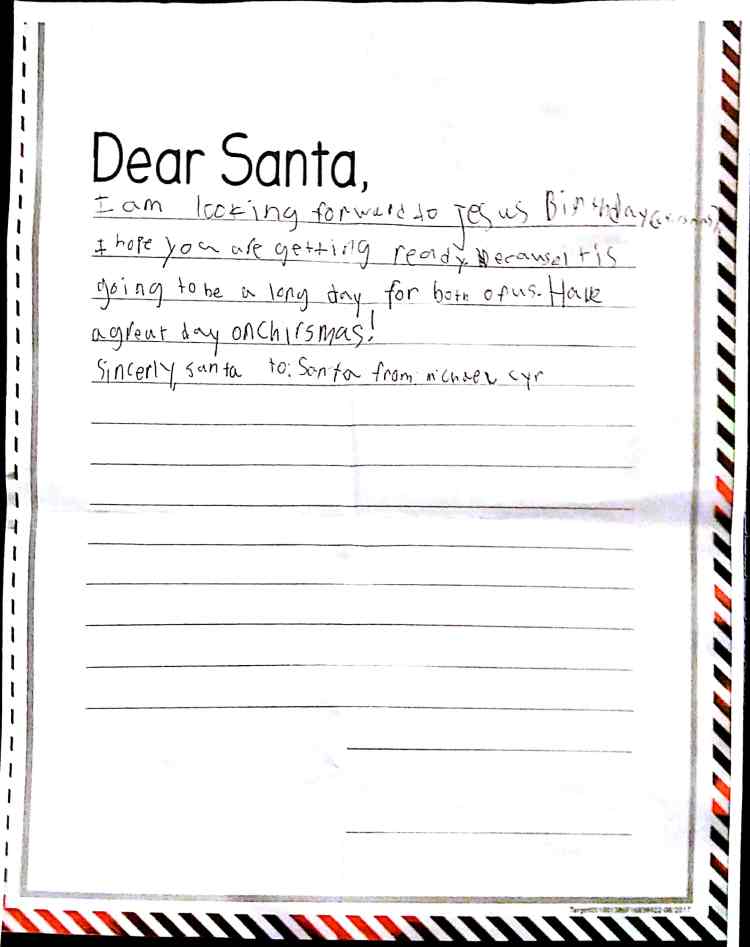 Dear Santa,
I am looking forward to Jesus Birthday
I hope you are getting ready Because it is
going to be a long day for both of us. Have
a great day on Chirsmas!
Sincerly, santa to: Santa from michael cyr